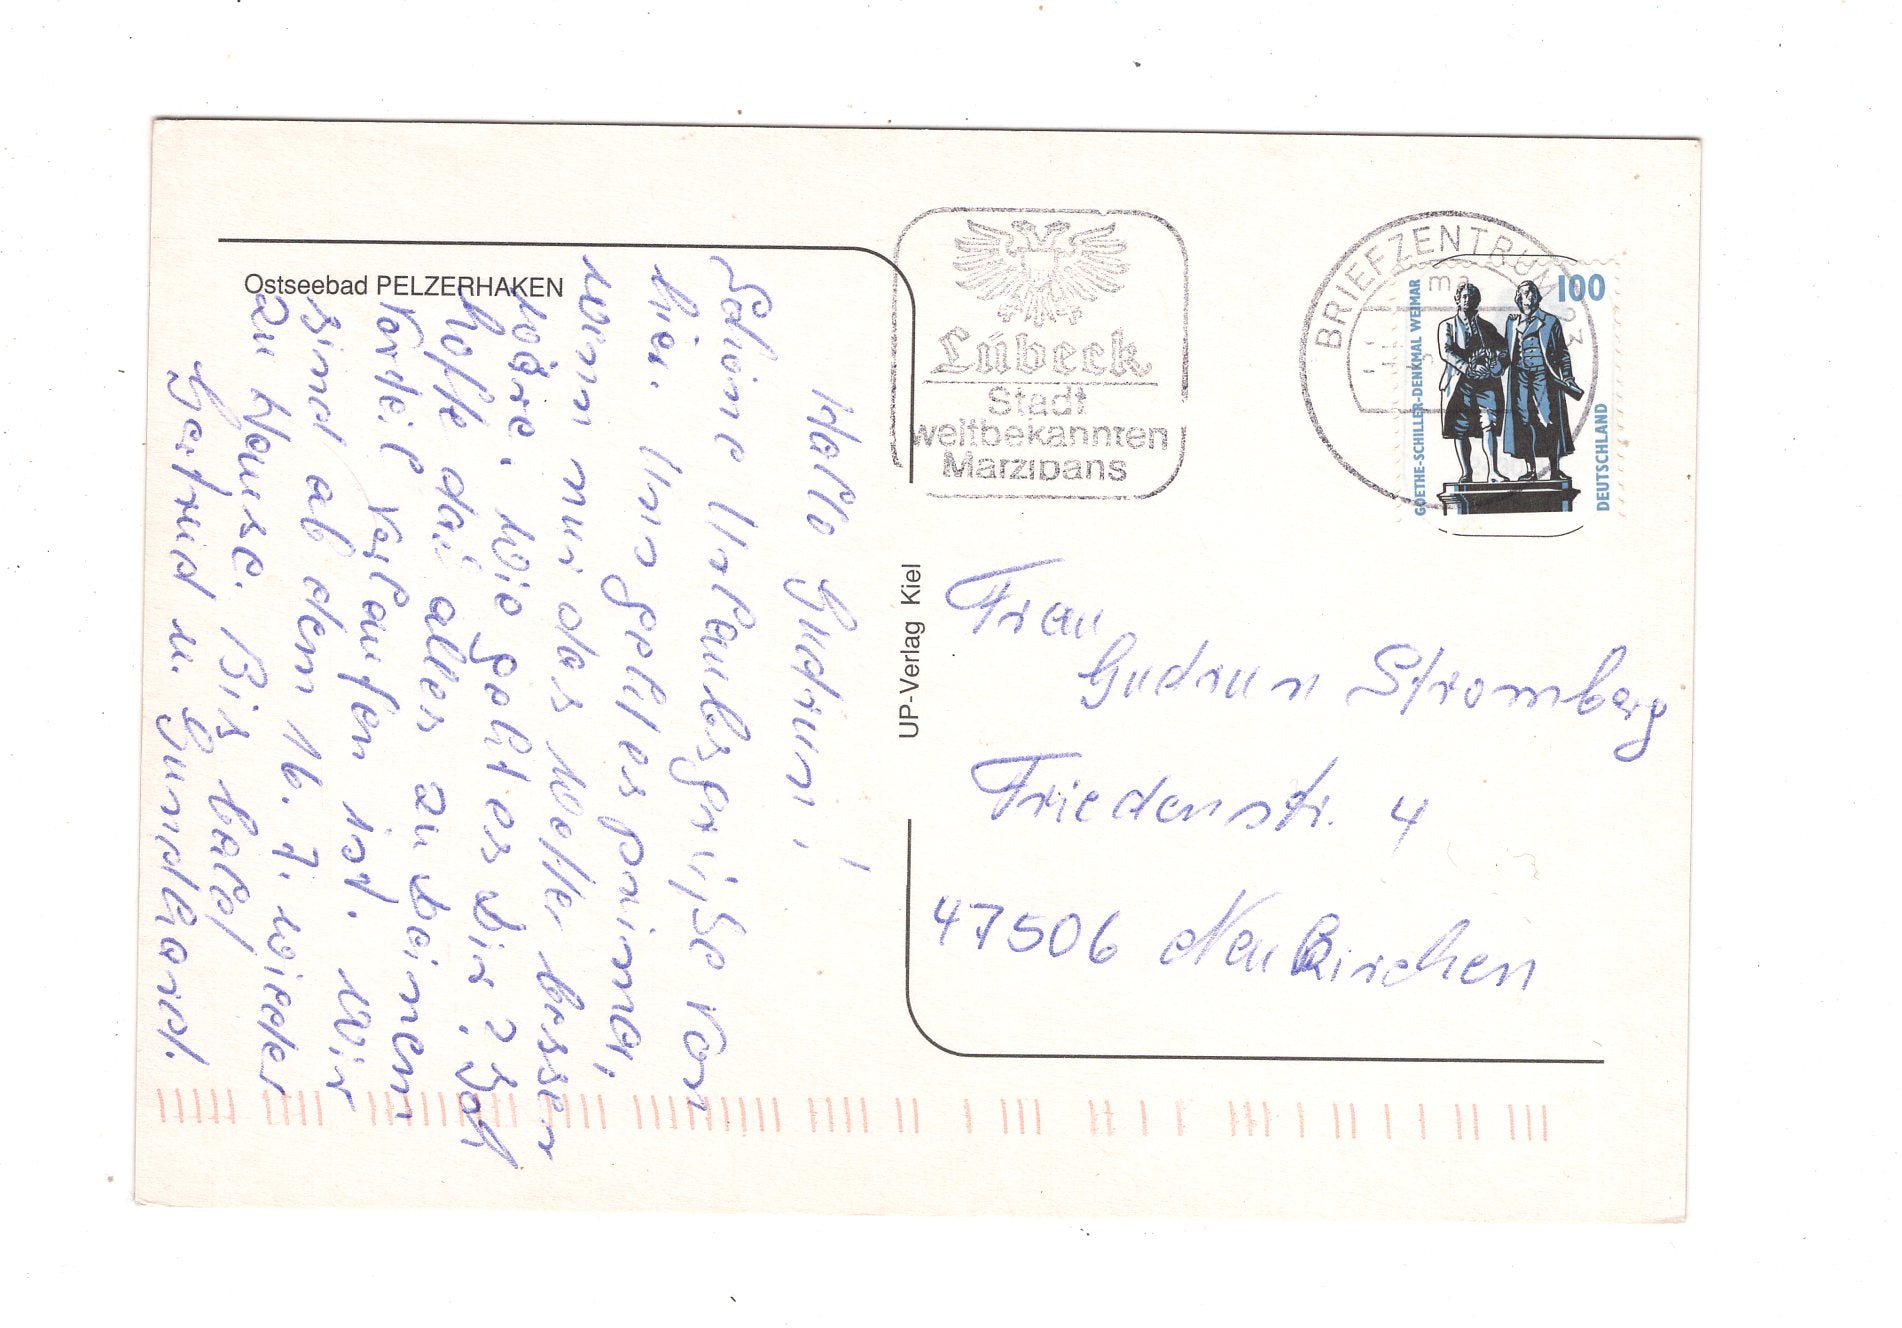 Ostseebad PELZERHAKEN
Hallo Gudrun!
Schöne Urlaubsgrüße von
hier. Uns geht es prima,
wenn nur das Wetter besser
wäre. Wie geht es Dir? Ich
hoffe daß alles zu Deinem
Vorteil verlaufen ist. Wir
sind ab dem 16. 7. wieder
zu Hause. Bis bald!
Gertrud u. Gundhard.
UP-Verlag Kiel
Lübeck
Stadt
weltbekannten
Marzipans
BRIEFZENTRUM 23
100
GOETHE-SCHILLER-DENKMAL WEIMAR
DEUTSCHLAND
Frau
Gudrun Stromberg
Friedenstr. 4
47506 Neukirchen